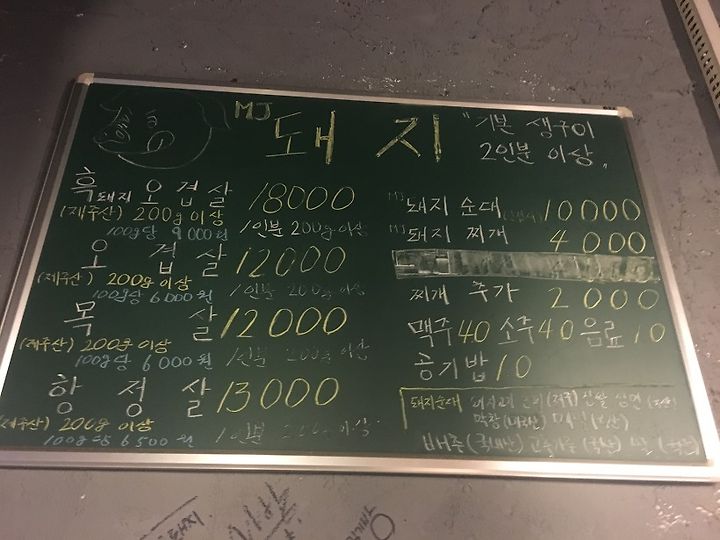 MJ 돼지 "기본 생구이
2인분 이상"
흑돼지 오겹살 18000
(제주산) 200g 이상
100g당 9000원 1인분 200g 이상
오겹살 12000
(제주산) 200g 이상
100g당 6000원 1인분 200g 이상
목살 12000
(제주산) 200g 이상
100g당 6000원 1인분 200g 이상
항정살 13000
(제주산) 200g 이상
100g당 6500원 1인분 이상
MJ 돼지 순대 10000
MJ 돼지 찌개 4000
찌개 추가 2000
맥주 40 소주 40 음료 10
공기밥 10
돼지순대
배추(국내산) 고춧가루